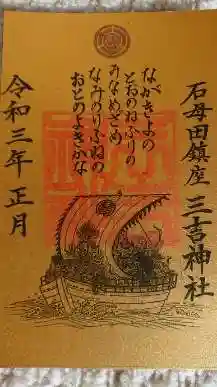 石母田鎮座 三吉神社
なかきよの
とおのねふりの
みなめざめ
なみのりふねの
おとのよきかな
令和三年 正月